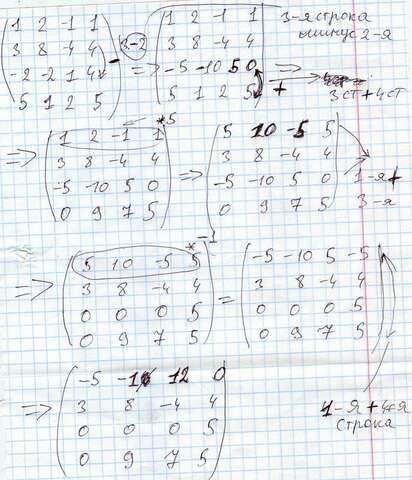 1 2 -1 1
3 8 -4 4
-2 -2 1 4
5 1 2 5
3-2
=>
1 2 -1 1
3 8 -4 4
-5 -10 5 0
5 1 2 5
+
3-я строка
минус 2-я
=>
3 ст + 4 ст
=>
*5
1 2 -1 1
3 8 -4 4
-5 -10 5 0
0 9 7 5
=>
5 10 -5 5
3 8 -4 4
-5 -10 5 0
0 9 7 5
1-я +
3-я
=>
*-1
5 10 -5 5
3 8 -4 4
0 0 0 5
0 9 7 5
=
-5 -10 5 -5
3 8 -4 4
0 0 0 5
0 9 7 5
=>
-5 -1 12 0
3 8 -4 4
0 0 0 5
0 9 7 5
1-я + 4ая
строка